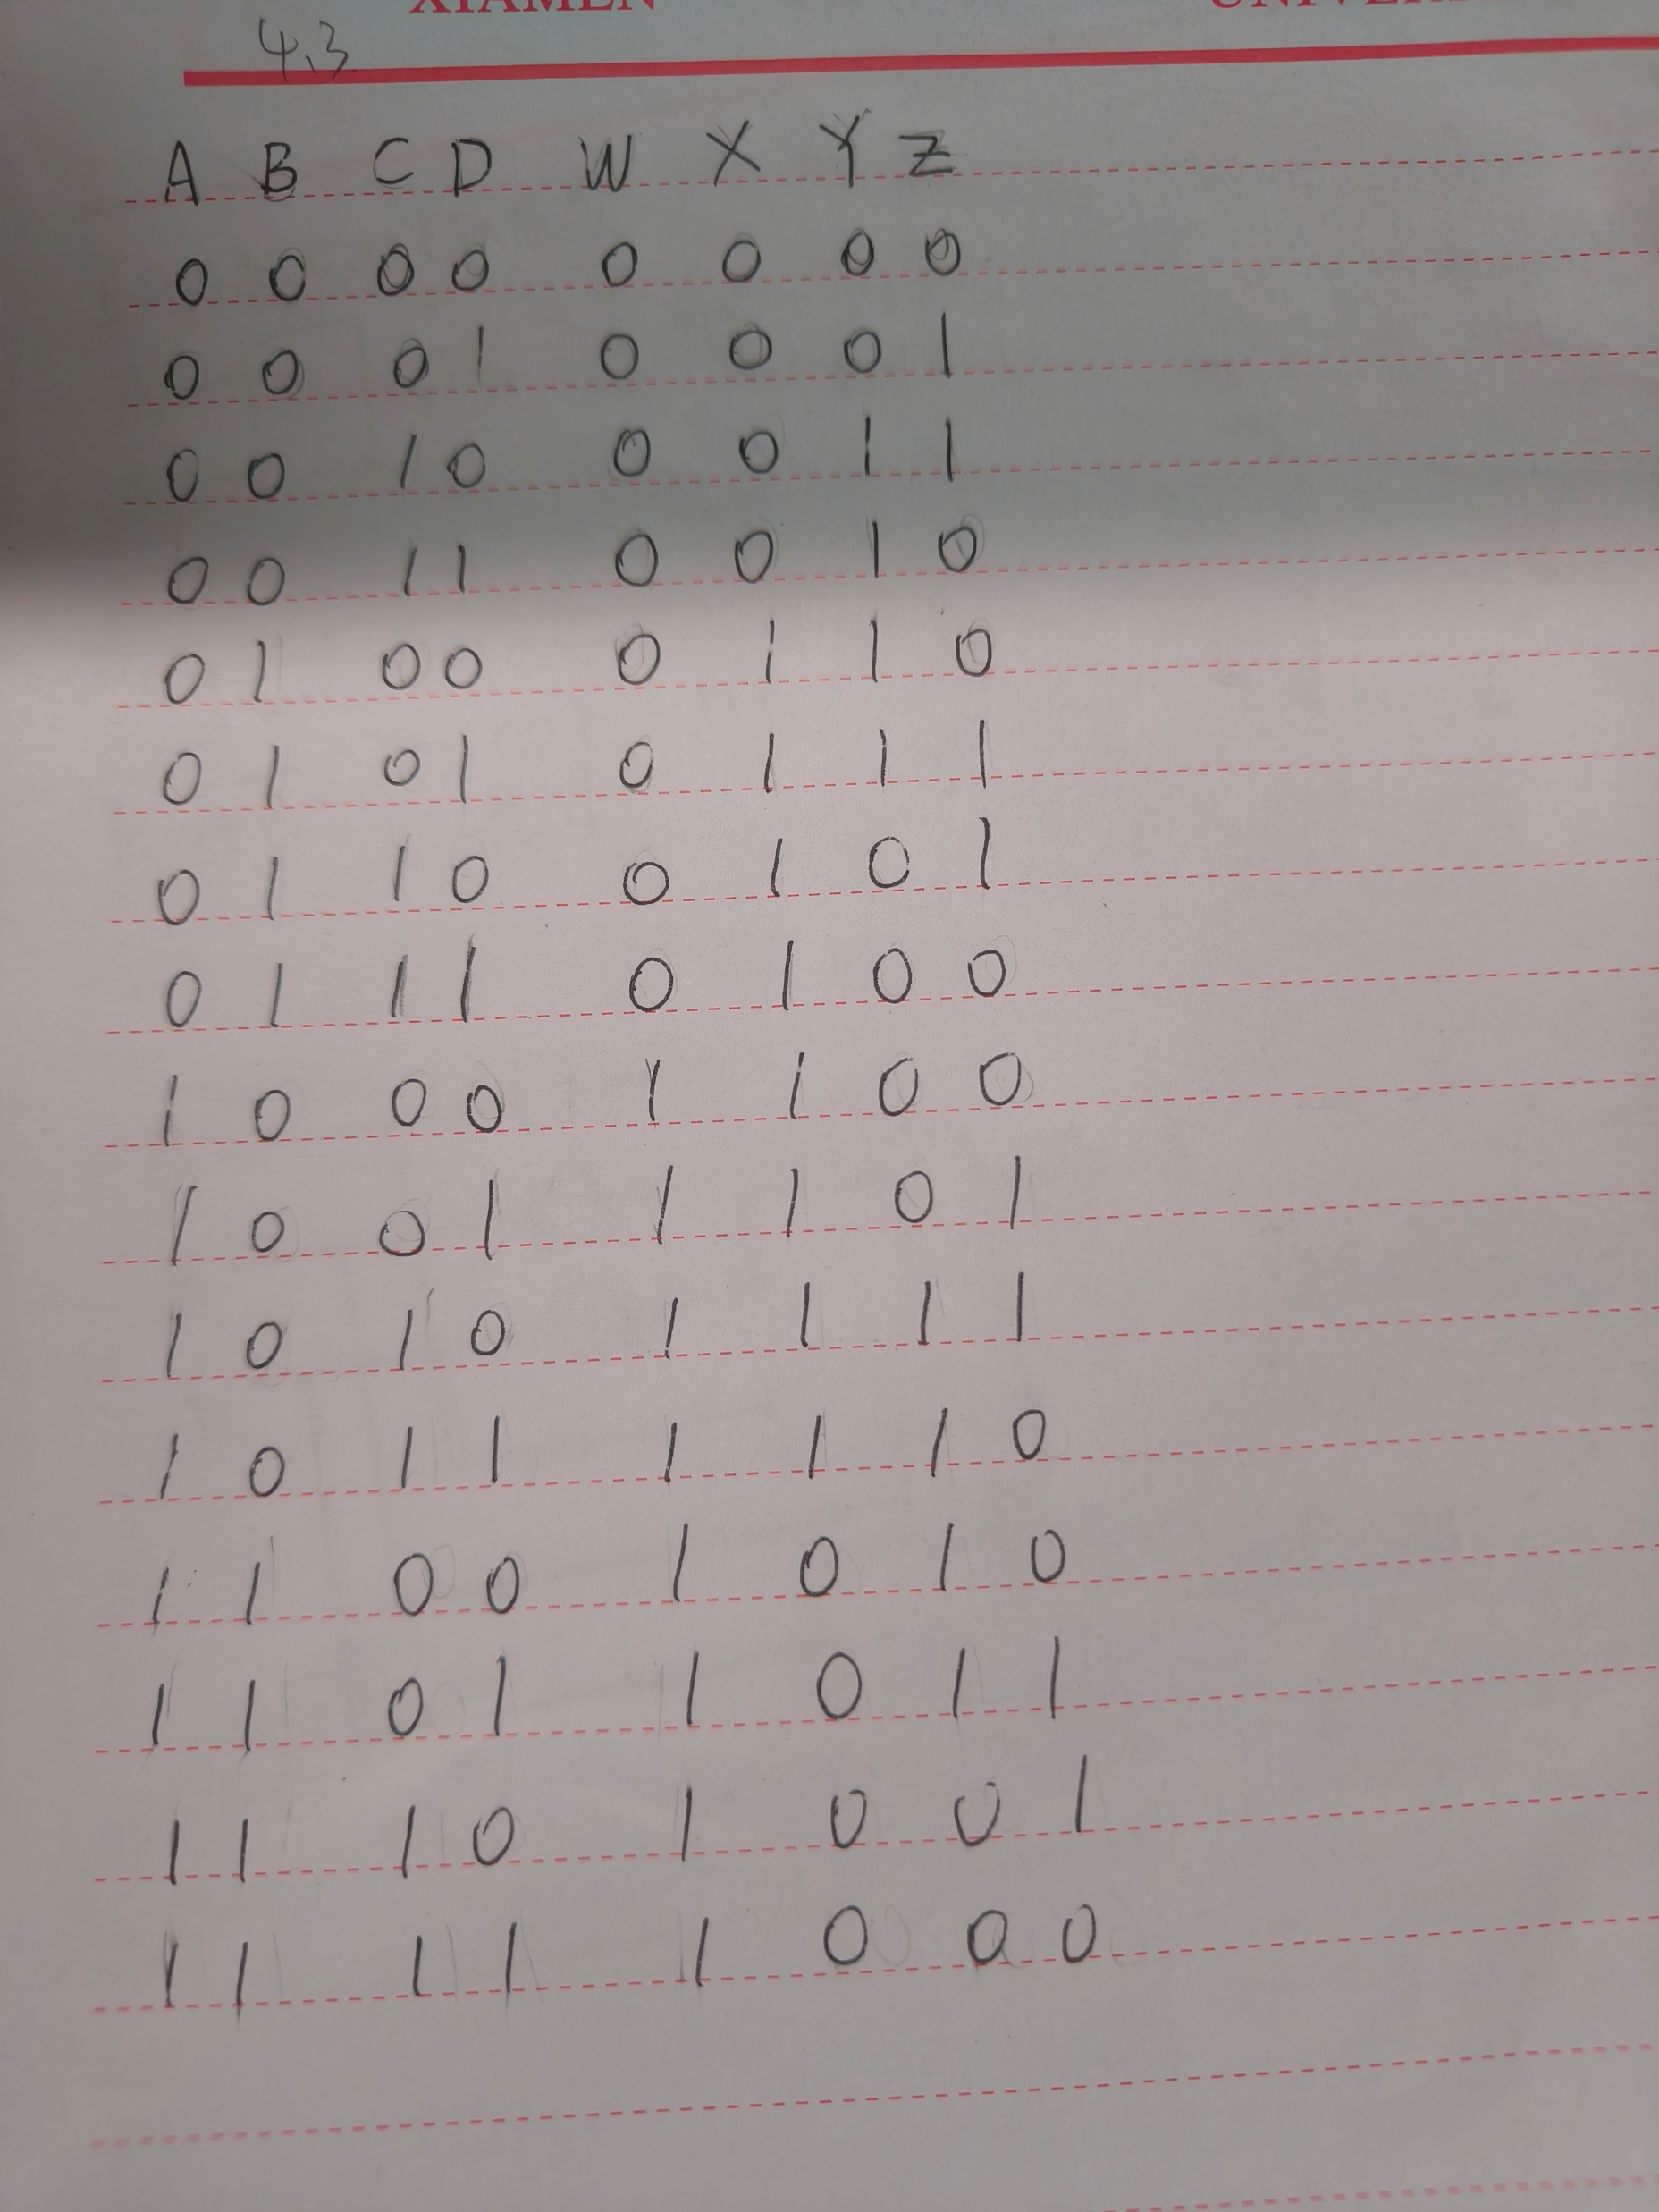 XIAMEN
4.3
A B C D W X Y Z
0 0 0 0 0 0 0 0
0 0 0 1 0 0 0 1
0 0 1 0 0 0 1 1
0 0 1 1 0 0 1 0
0 1 0 0 0 1 1 0
0 1 0 1 0 1 1 1
0 1 1 0 0 1 0 1
0 1 1 1 0 1 0 0
1 0 0 0 1 1 0 0
1 0 0 1 1 1 0 1
1 0 1 0 1 1 1 1
1 0 1 1 1 1 1 0
1 1 0 0 1 0 1 0
1 1 0 1 1 0 1 1
1 1 1 0 1 0 0 1
1 1 1 1 1 0 0 0